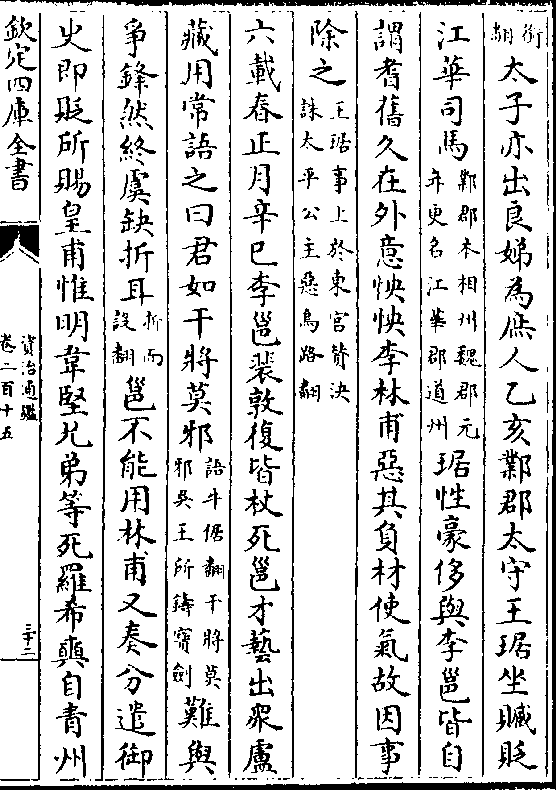 銜翻太子亦出良娣為庶人乙亥鄴郡太守王琚坐贓貶
江華司馬鄴郡本相州魏郡元年更名江華郡道州琚性豪侈與李邕皆自
謂耆舊久在外意怏怏李林甫惡其負材使氣故因事
除之王琚事上於東宫賛決誅太平公主惡烏路翻
六載春正月辛巳李邕裴敦復皆杖死邕才藝出衆盧
藏用常語之曰君如干將莫邪語牛倨翻干將莫邪吳王所鑄寳劍難與
爭鋒然終虞缺折耳折而設翻邕不能用林甫又奏分遣御
史即貶所賜皇甫惟明韋堅兄弟等死羅希奭自青州
欽定四庫全書
資治通鑑
卷二百十五
三十二